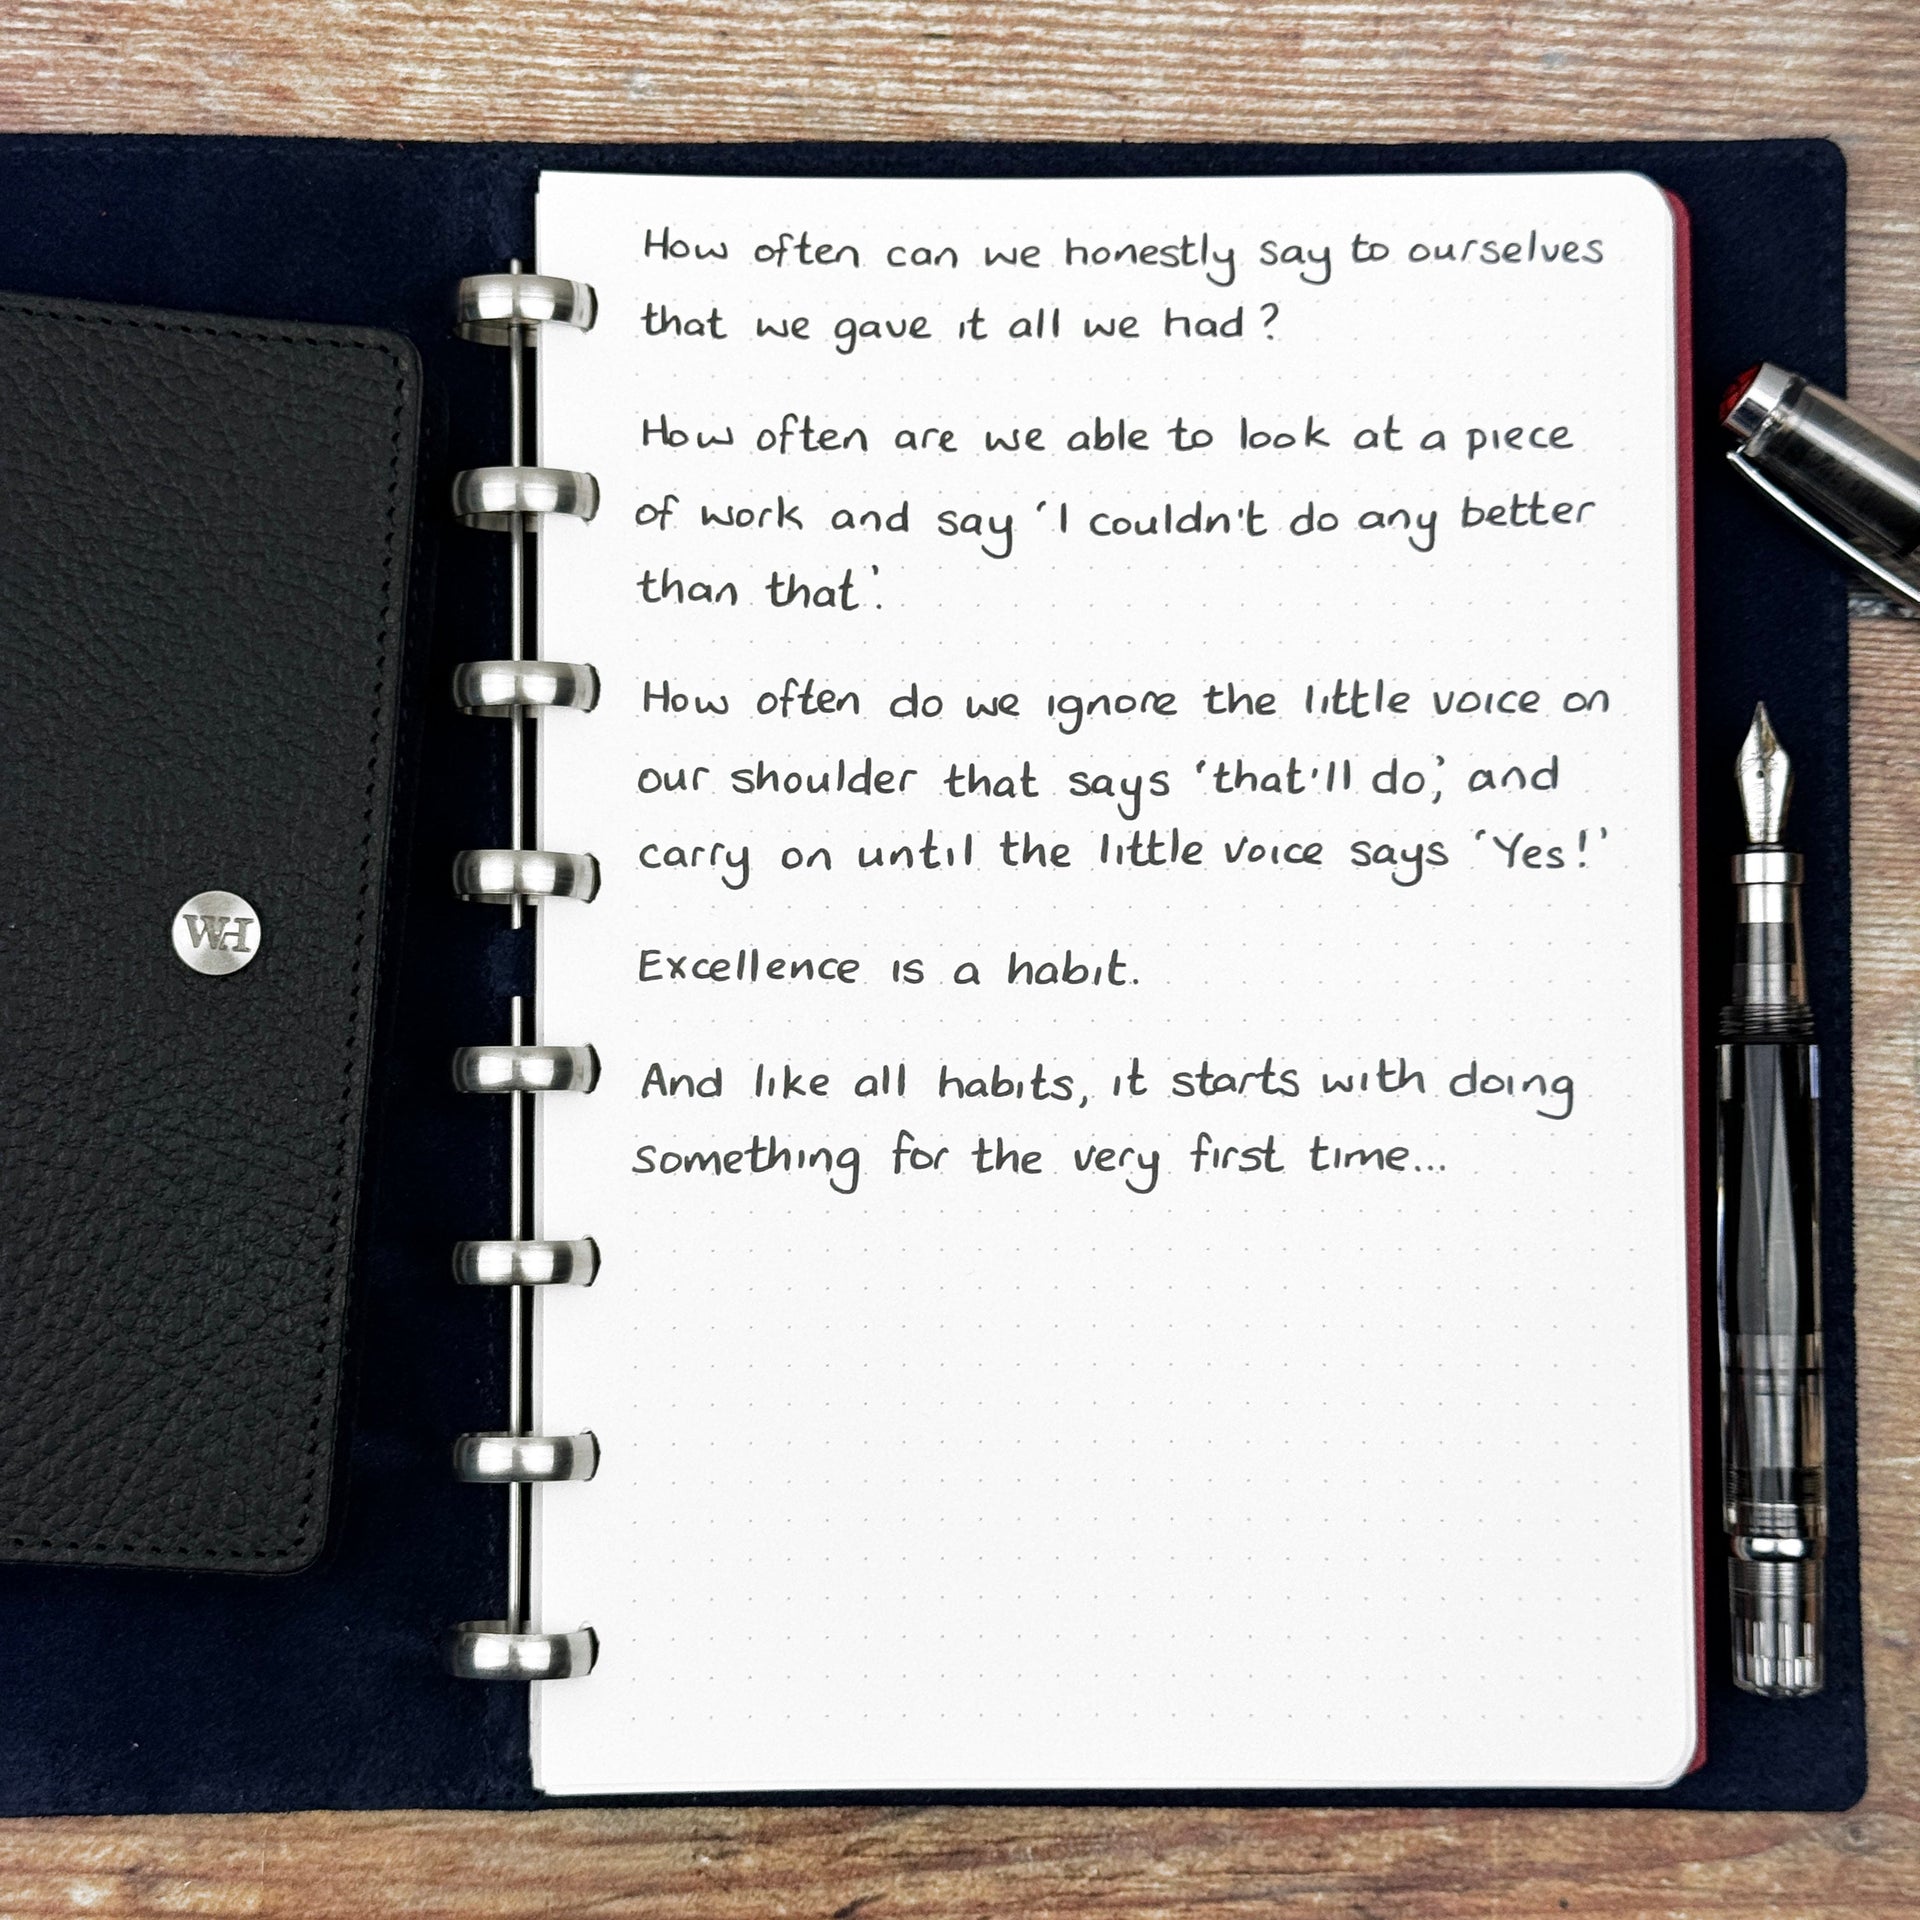 How often can we honestly say to ourselves
that we gave it all we had?
How often are we able to look at a piece
of work and say 'I couldn't do any better
than that'.
How often do we ignore the little voice on
our shoulder that says 'that'll do', and
carry on until the little voice says 'Yes!'
Excellence is a habit.
And like all habits, it starts with doing
something for the very first time...
WH